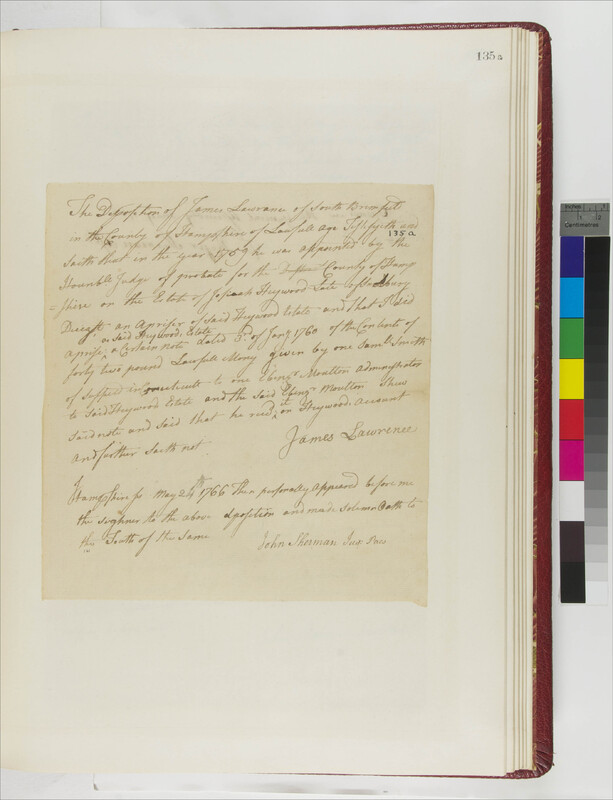 135a
The Deposition of James Lawrance of South Brimfield
in the County of Hampshire of Lawfull age Testifyeth and
135a
saith that in the year 1759 he was appointed by the
Hounble Judge of probate for the County of Hamp
=shire on the Estate of Josiah Heywood Late of
Deceast an Apriser of Said Heywood Estate and that I did
on Said Heywood Estate
aprise a Certain note dated 3d of Jany 1760 of the Contents of
forty two pound Lawfull Money given by one Saml Smith
of Suffield in Conecticutt to one Ebenr Moulton adminstrator
to Said Heywood Estate and the Said Ebenr Moulton Shew
Said note and Said that he it on Heywood account
and further Saith not
James Lawrence
Hampshire ss May 24th 1766 then personally appeared before me
the sighner to the above dposition and made solemn Oath to
the Truth of the Same
John Sherman Jus Pacs
Centimetres